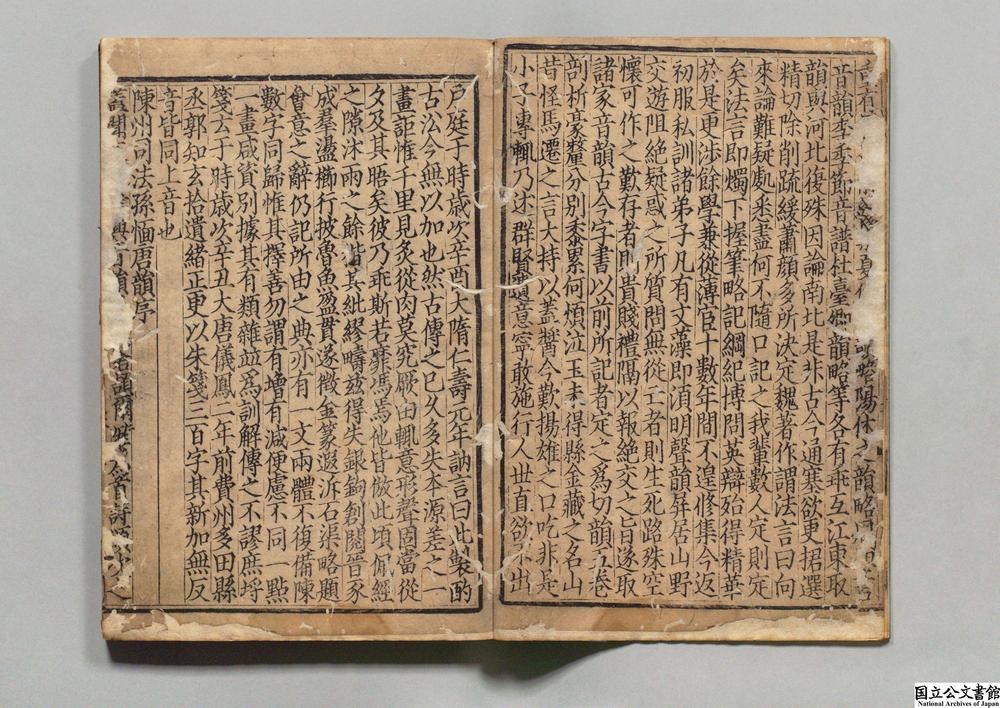 言者夏韻略陽休之韻略
音韻李季節音譜杜臺卿韻略等各有乖互江東取
韻與河北復殊因論南北是非古今通塞欲更捃選
精切除削疏緩蕭顏多所決定魏著作謂法言曰向
來論難疑處悉盡何不隨口記之我輩數人定則定
矣法言即燭下握筆略記綱紀博問英辯殆得精華
於是更涉餘學兼從薄宦十數年間不遑修集今返
初服私訓諸弟子凡有文藻即須明聲韻屏居山野
交遊阻絕疑惑之所質問無從亡者則生死路殊空
懷可作之歎存者則貴賤禮隔以報絕交之旨遂取
諸家音韻古今字書以前所記者定之爲切韻五卷
剖析毫釐分別黍累何煩泣玉未得縣金藏之名山
昔怪馬遷之言大持以蓋醬今歎揚雄之口吃非是
小子專輒乃述群賢遺意寧敢施行人世直欲不出
戶庭于時歲次辛酉大隋仁壽元年訥言曰此製酌
古沿今無以加也然古傳之已久多失本源差之一
畫詎惟千里見炙從肉莫究厥由輒意形聲固當從
夕及其晤矣彼乃乖斯若靡馮焉他皆倣此頃佩經
之隙沐雨之餘揩其紕繆疇兹得失銀鉤創閱晉豕
成羣盪櫛行披魯魚盈貫遂徵金篆遐泝石渠略題
會意之辭仍記所由之典亦有一文兩體不復備陳
數字同歸惟其擇善勿謂有增有減便慮不同一點
畫咸資別據其有類雜並爲訓解傳之不謬庶埒
箋云于時歲次辛丑大唐儀鳳二年前費州多田縣
丞郭知玄拾遺緒正更以朱箋三百字其新加無反
音皆同上音也
陳州司法孫愐唐韻序
蓋聞
国立公文書館
National Archives of Japan